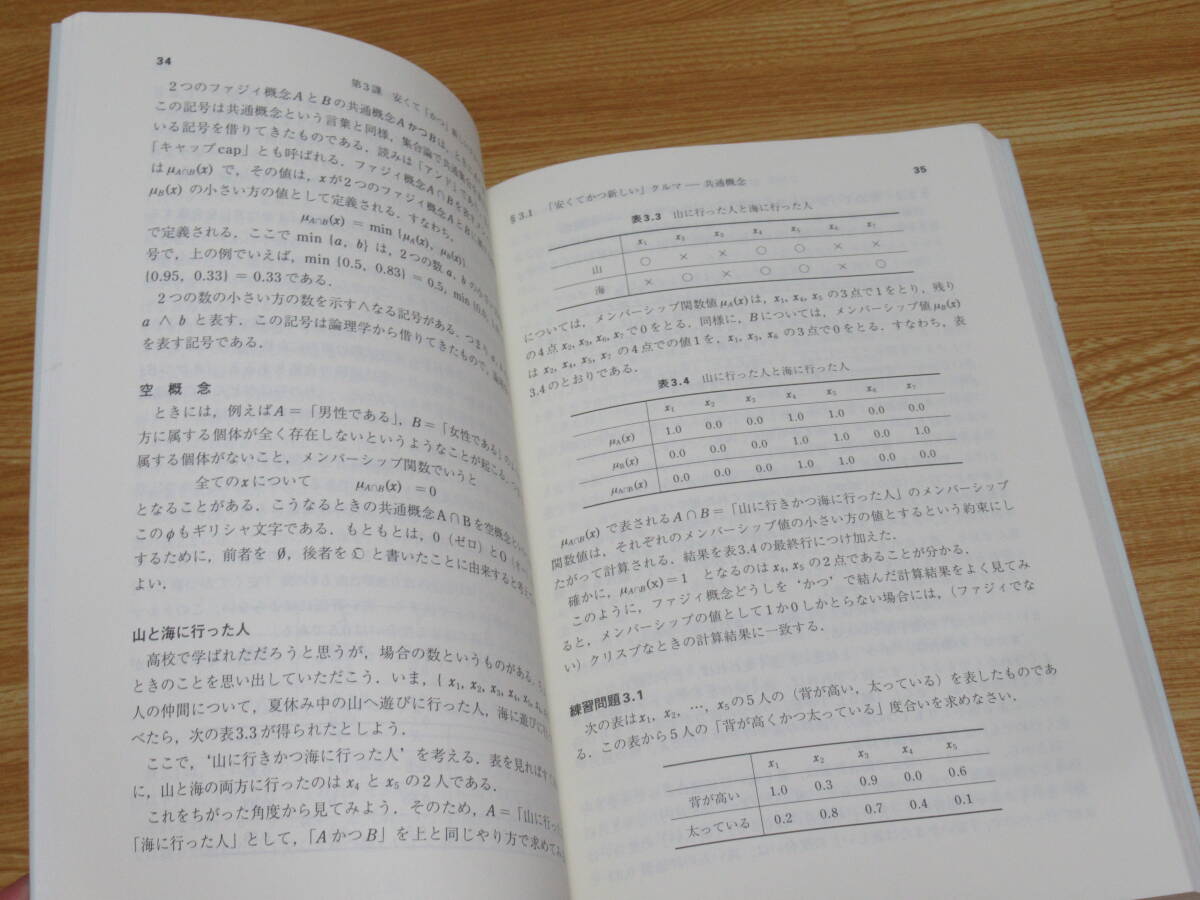 34
第3課 安くて「かつ」新し
2つのファジィ概念AとBの共通概念AかつBは,とき
この記号は共通概念という言葉と同様,集合論で共通集合
いる記号を借りてきたものである.読みは「アンド」であ
「キャップcap」とも呼ばれる.ファジィ概念A∩Bを表す
はμA∩B(x)で,その値は,xが2つのファジィ概念AとBに
μB(x)の小さい方の値として定義される.すなわち,
μA∩B(x) = min {μA(x), μB(x)}
で定義される.ここで min {a, b} は,2つの数a, bの小さい
号で,上の例でいえば, min {0.5, 0.83} = 0.5, min
{0.95, 0.33} = 0.33である.
2つの数の小さい方の数を示す∧なる記号がある.つまり
a ∧ b と表す.この記号は論理学から借りてきたもので,
を表す記号である.
空概念
ときには,例えばA=「男性である」,B=「女性である」の
方に属する個体が全く存在しないというようなことが起こる.
属する個体がないこと,メンバーシップ関数でいうと
全てのxについて μA∩B(x) = 0
となることがある.こうなるときの共通概念A∩Bを空概念とい
このφもギリシャ文字である.もともとは,0(ゼロ)とO(オー
するために,前者を 0̸,後者を と書いたことに由来すると考え
よい.
山と海に行った人
高校で学ばれただろうと思うが,場合の数というものがある.
ときのことを思い出していただこう.いま,{x1, x2, x3, x4, x5,
人の仲間について,夏休み中の山へ遊びに行った人,海に遊びに行
べたら,次の表3.3が得られたとしよう.
ここで,‘山に行きかつ海に行った人’を考える.表を見れば
に,山と海の両方に行ったのはx4とx5の2人である.
これをちがった角度から見てみよう.そのため,A=「山に行っ
「海に行った人」として,「AかつB」を上と同じやり方で求めてみ
§3.1 「安くてかつ新しい」クルマ―共通概念
35
表3.3 山に行った人と海に行った人
x1 x2 x3 x4 x5 x6 x7
山 ○ × × ○ ○ × ×
海 × ○ × ○ ○ × ○
については,メンバーシップ関数値μA(x)は,x1, x4, x5の3点で1をとり,残り
の4点x2, x3, x6, x7で0をとる.同様に,Bについては,メンバーシップ値μB(x)
は x2, x4, x5, x7 の4点での値1を,x1, x3, x6 の3点で0をとる.すなわち,表
3.4のとおりである.
表3.4 山に行った人と海に行った人
x1 x2 x3 x4 x5 x6 x7
μA(x) 1.0 0.0 0.0 1.0 1.0 0.0 0.0
μB(x) 0.0 0.0 0.0 1.0 1.0 0.0 1.0
μA∩B(x) 0.0 0.0 0.0 1.0 1.0 0.0 0.0
μA∩B(x)で表されるA∩B=「山に行きかつ海に行った人」のメンバーシップ
関数値は,それぞれのメンバーシップ値の小さい方の値とするという約束にし
たがって計算される.結果を表3.4の最終行につけ加えた.
確かに,μA∩B(x)=1 となるのはx4, x5の2点であることが分かる.
このように,ファジィ概念どうしを‘かつ’で結んだ計算結果をよく見てみ
ると,メンバーシップの値として1か0しかとらない場合には,(ファジィでな
い)クリスプなときの計算結果に一致する.
練習問題3.1
次の表はx1, x2, …, x5の5人の(背が高い,太っている)を表したものであ
る.この表から5人の「背が高くかつ太っている」度合いを求めなさい.
x1 x2 x3 x4 x5
背が高い 1.0 0.3 0.9 0.0 0.6
太っている 0.2 0.8 0.7 0.4 0.1